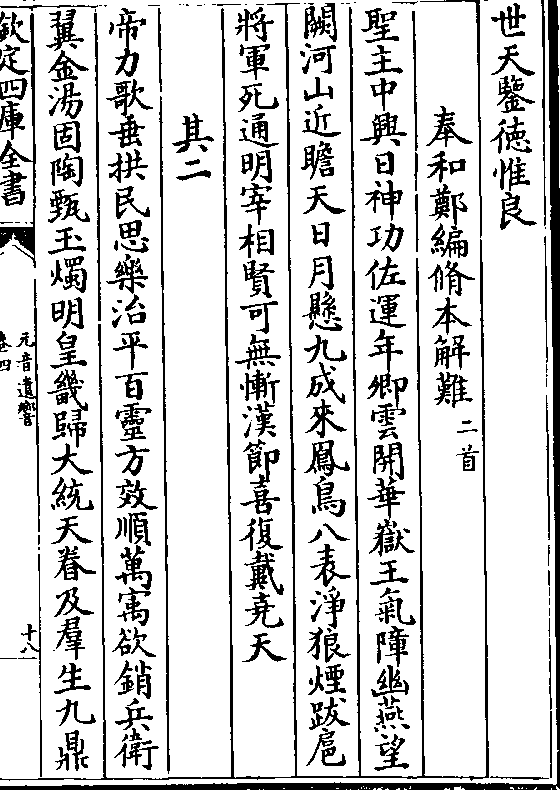 世天鑒徳惟良
奉和鄭編脩本解難 二首
聖主中興日神功佐運年卿雲開華嶽王氣障幽燕望
闕河山近瞻天日月懸九成來鳳鳥八表淨狼煙跋扈
將軍死通明宰相賢可無慚漢節喜復戴堯天
其二
帝力歌垂拱民思樂治平百靈方效順萬㝢欲銷兵衛
翼金湯固陶甄玉燭明皇畿歸大統天眷及羣生九鼎
欽定四庫全書
元音遺響
卷四
十八